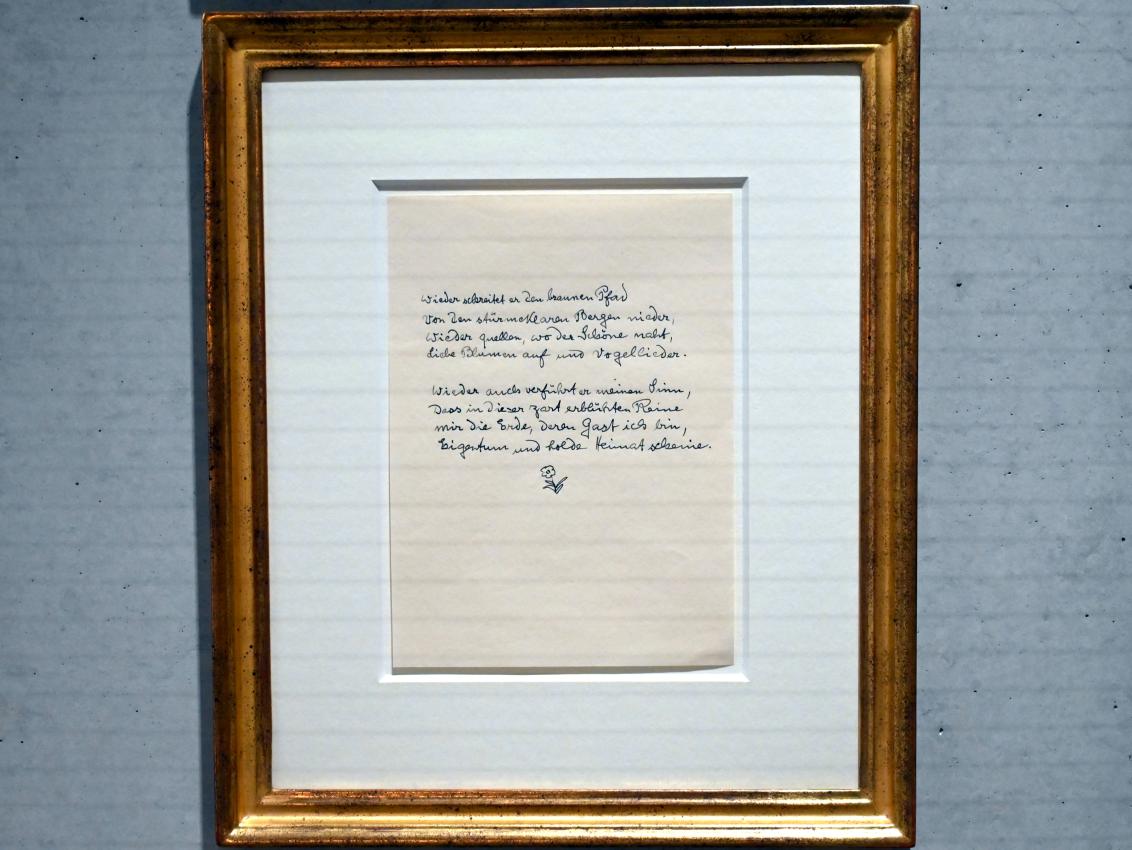 Wieder schreitet er den braunen Pfad
Von den stürmeklaren Bergen nieder,
Wieder quellen, wo der Schöne naht,
Liebe Blumen auf und Vogellieder.
Wieder auch verführt er meinen Sinn,
Dass in dieser zart erblühten Reine
mir die Erde, deren Gast ich bin,
Eigentum und holde Heimat scheine.